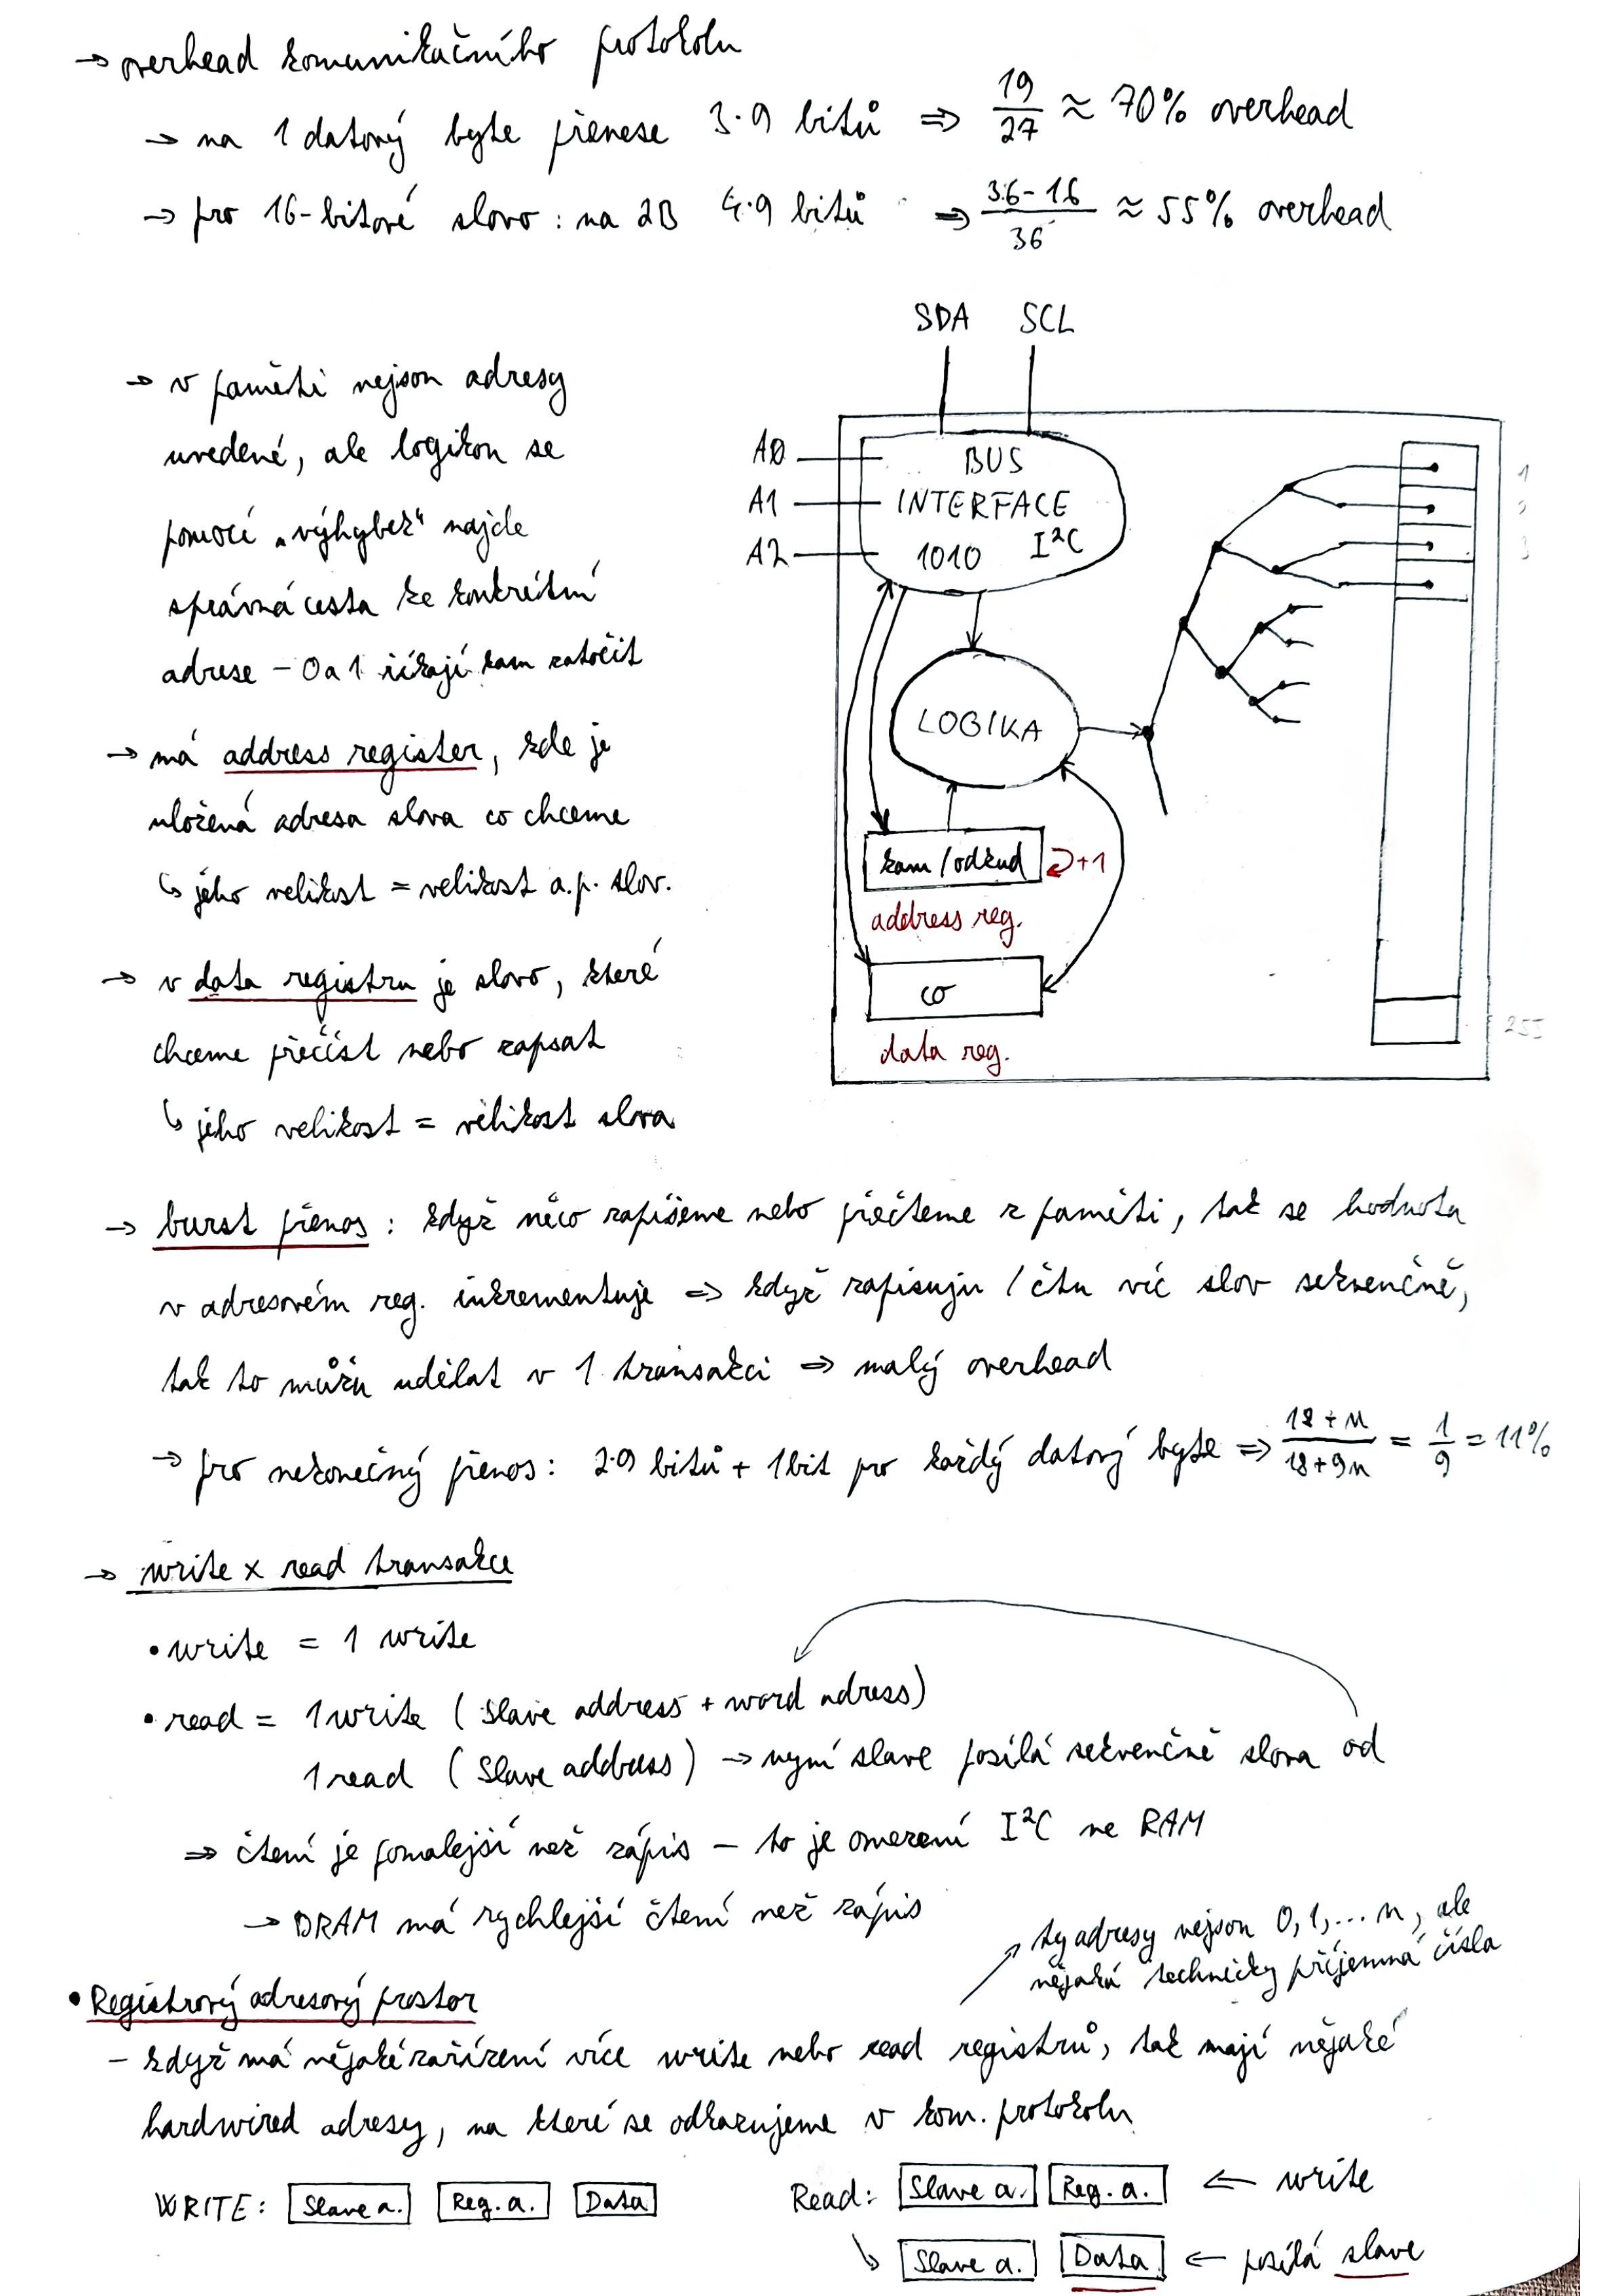 → overhead komunikačního protokolu
→ na 1 datový byte přenese 3·9 bitů ⇒ 19/27 ≈ 70% overhead
→ pro 16-bitové slovo : na 2B 4·9 bitů ⇒ 36-16/36 ≈ 55% overhead
SDA SCL
→ v paměti nejsou adresy
uvedené, ale logikou se
pomocí „výhybek" najde
správná cesta ke konkrétní
adrese – 0 a 1 říkají kam zatočit
→ má address register, kde je
uložená adresa slova co chceme
↳ jeho velikost = velikost a.p. slov.
→ v data registru je slovo, které
chceme přečíst nebo zapsat
↳ jeho velikost = velikost slova
A0
A1
A2
BUS
INTERFACE
1010 I²C
LOGIKA
kam / odkud +1
address reg.
co
data reg.
1
2
3
255
→ burst přenos : když něco zapíšeme nebo přečteme z paměti, tak se hodnota
v adresovém reg. inkrementuje ⇒ když zapisuju / čtu víc slov sekvenčně,
tak to můžu udělat v 1 transakci ⇒ malý overhead
→ pro nekonečný přenos: 2·9 bitů + 1 bit pro každý datový byte ⇒ 18+n/18+9n = 1/9 = 11%
→ write x read transakce
• write = 1 write
• read = 1 write ( Slave address + word adress)
1 read ( Slave address ) → nyní slave posílá sekvenčně slova od
⇒ čtení je pomalejší než zápis – to je omezení I²C ne RAM
→ DRAM má rychlejší čtení než zápis
ty adresy nejsou 0, 1, ... n, ale
nějaká technicky příjemná čísla
• Registrový adresový prostor
– když má nějaké zařízení více write nebo read registrů, tak mají nějaké
hardwired adresy, na které se odkazujeme v kom. protokolu
WRITE: Slave a. Reg. a. Data
Read: Slave a. Reg. a. ← write
↳ Slave a. Data ← posílá slave